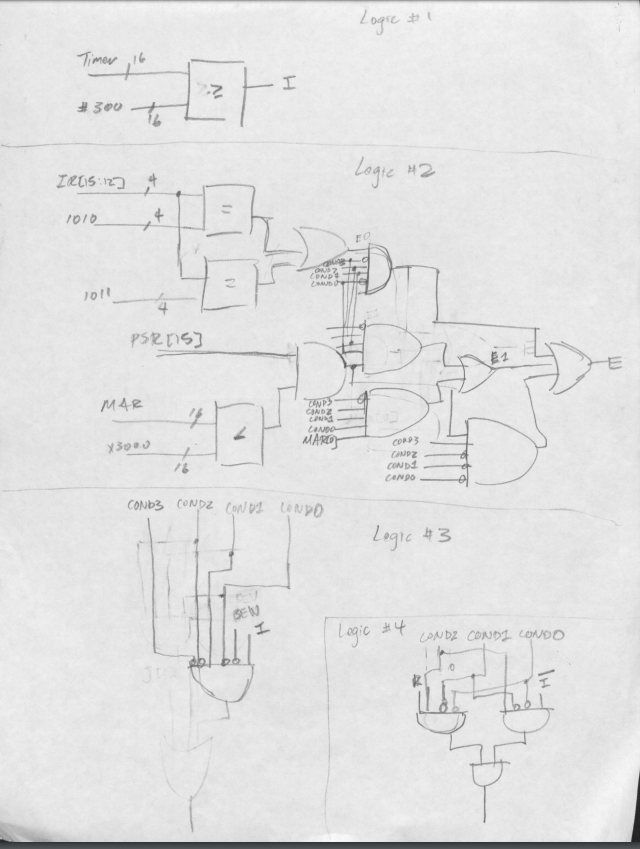 Logic #1
Timer 16
≥
I
#300
16
Logic #2
IR[15:12] 4
=
1010 4
E0
COND3
COND2
COND1
COND0
=
1011
4
PSR[15]
E1
E
MAR
16
<
x3000
16
COND3
COND2
COND1
COND0
MAR[0]
COND3
COND2
COND1
COND0
COND3 COND2 COND1 COND0
Logic #3
BEN
I
Logic #4 COND2 COND1 COND0
R
I